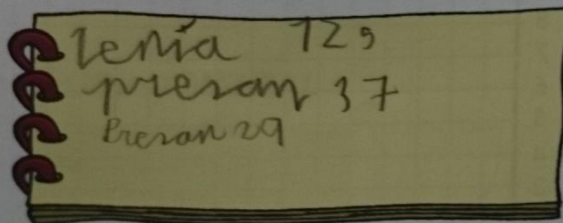 tenía 129
presan 37
Presan 29